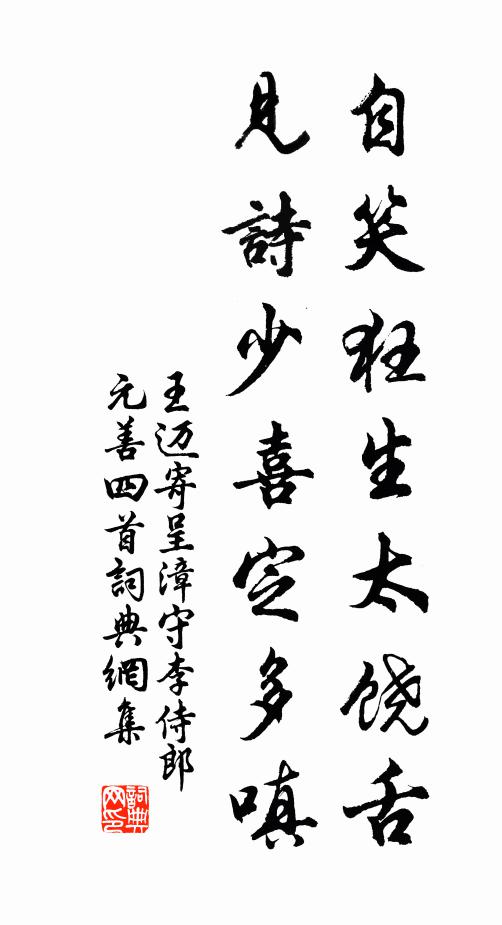 自笑狂生太饶舌
見詩少喜定多嗔
王迈寄呈漳守李侍郎
元善四首詞典網集
詞典
网印